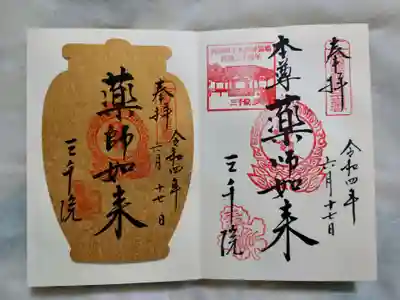 奉拝
本尊 薬師如来
令和四年
六月十七日
三千院
奉拝
薬師如来
令和四年
六月十七日
三千院